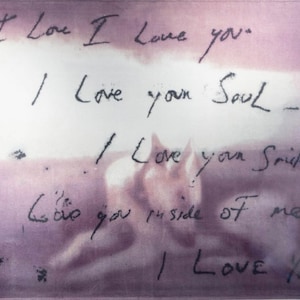 I Love I Love you
I Love your SouL
I Love your Smile
Love you inside of me
I Love